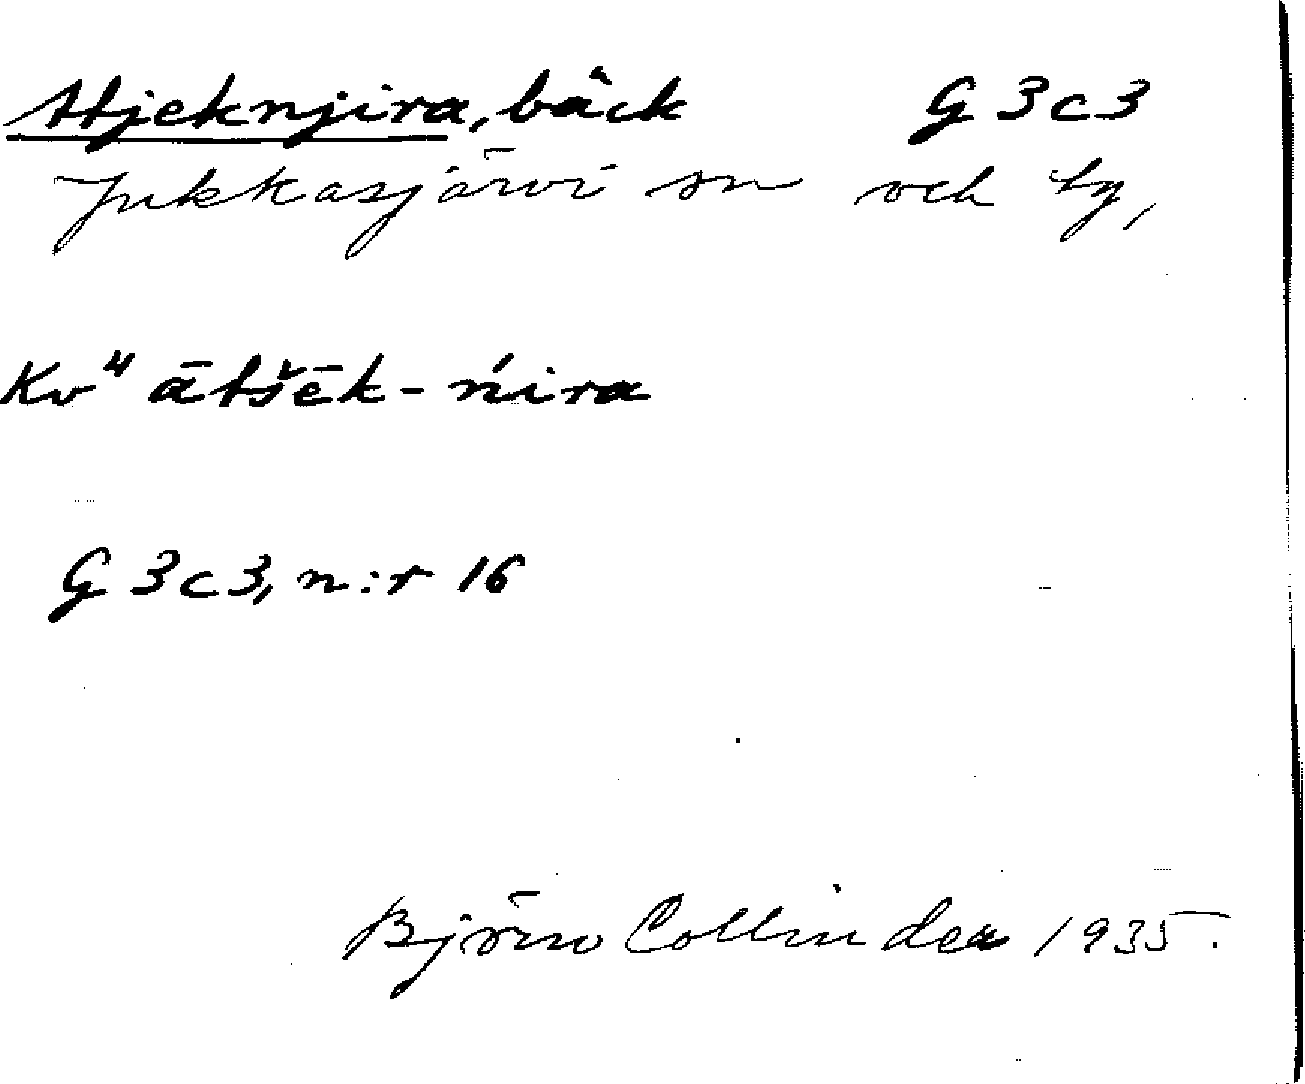 Atjeknjira, bäck G 3 c 3
Jukkasjärvi sn och by,
Kv" ātšēk-ńira
G 3 c 3, n:r 16
Björn Collinder 1935.